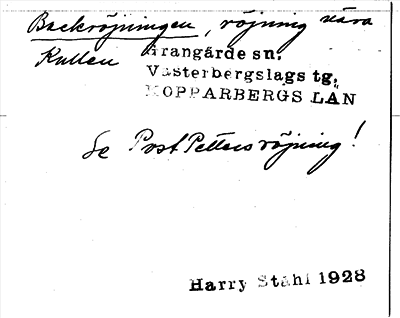 Backröjningen, röjning nära
Kullen Grangärde sn,
Västerbergslags tg,
KOPPARBERGS LÄN
Se Post Petters röjning!
Harry Ståhl 1928